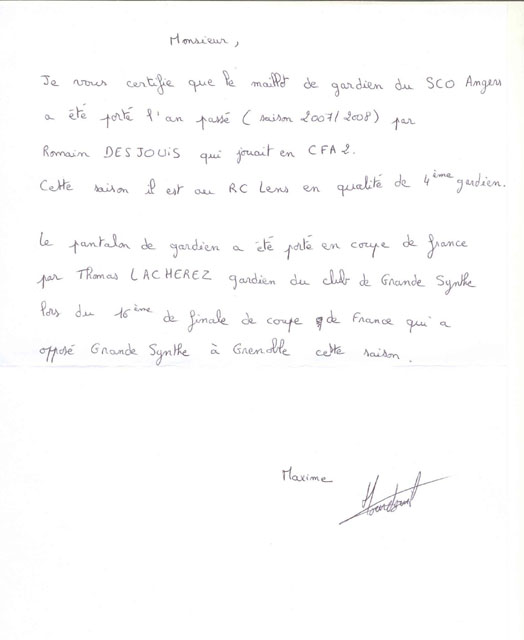 Monsieur,
Je vous certifie que le maillot de gardien du SCO Angers
a été porté l'an passé (saison 2007/2008) par
Romain DESJOUIS qui jouait en CFA 2.
Cette saison il est au RC Lens en qualité de 4ème gardien.
Le pantalon de gardien a été porté en coupe de france
par Thomas LACHEREZ gardien du club de Grande Synthe
lors du 16ème de finale de coupe de France qui a
opposé Grande Synthe à Grenoble cette saison.
Maxime